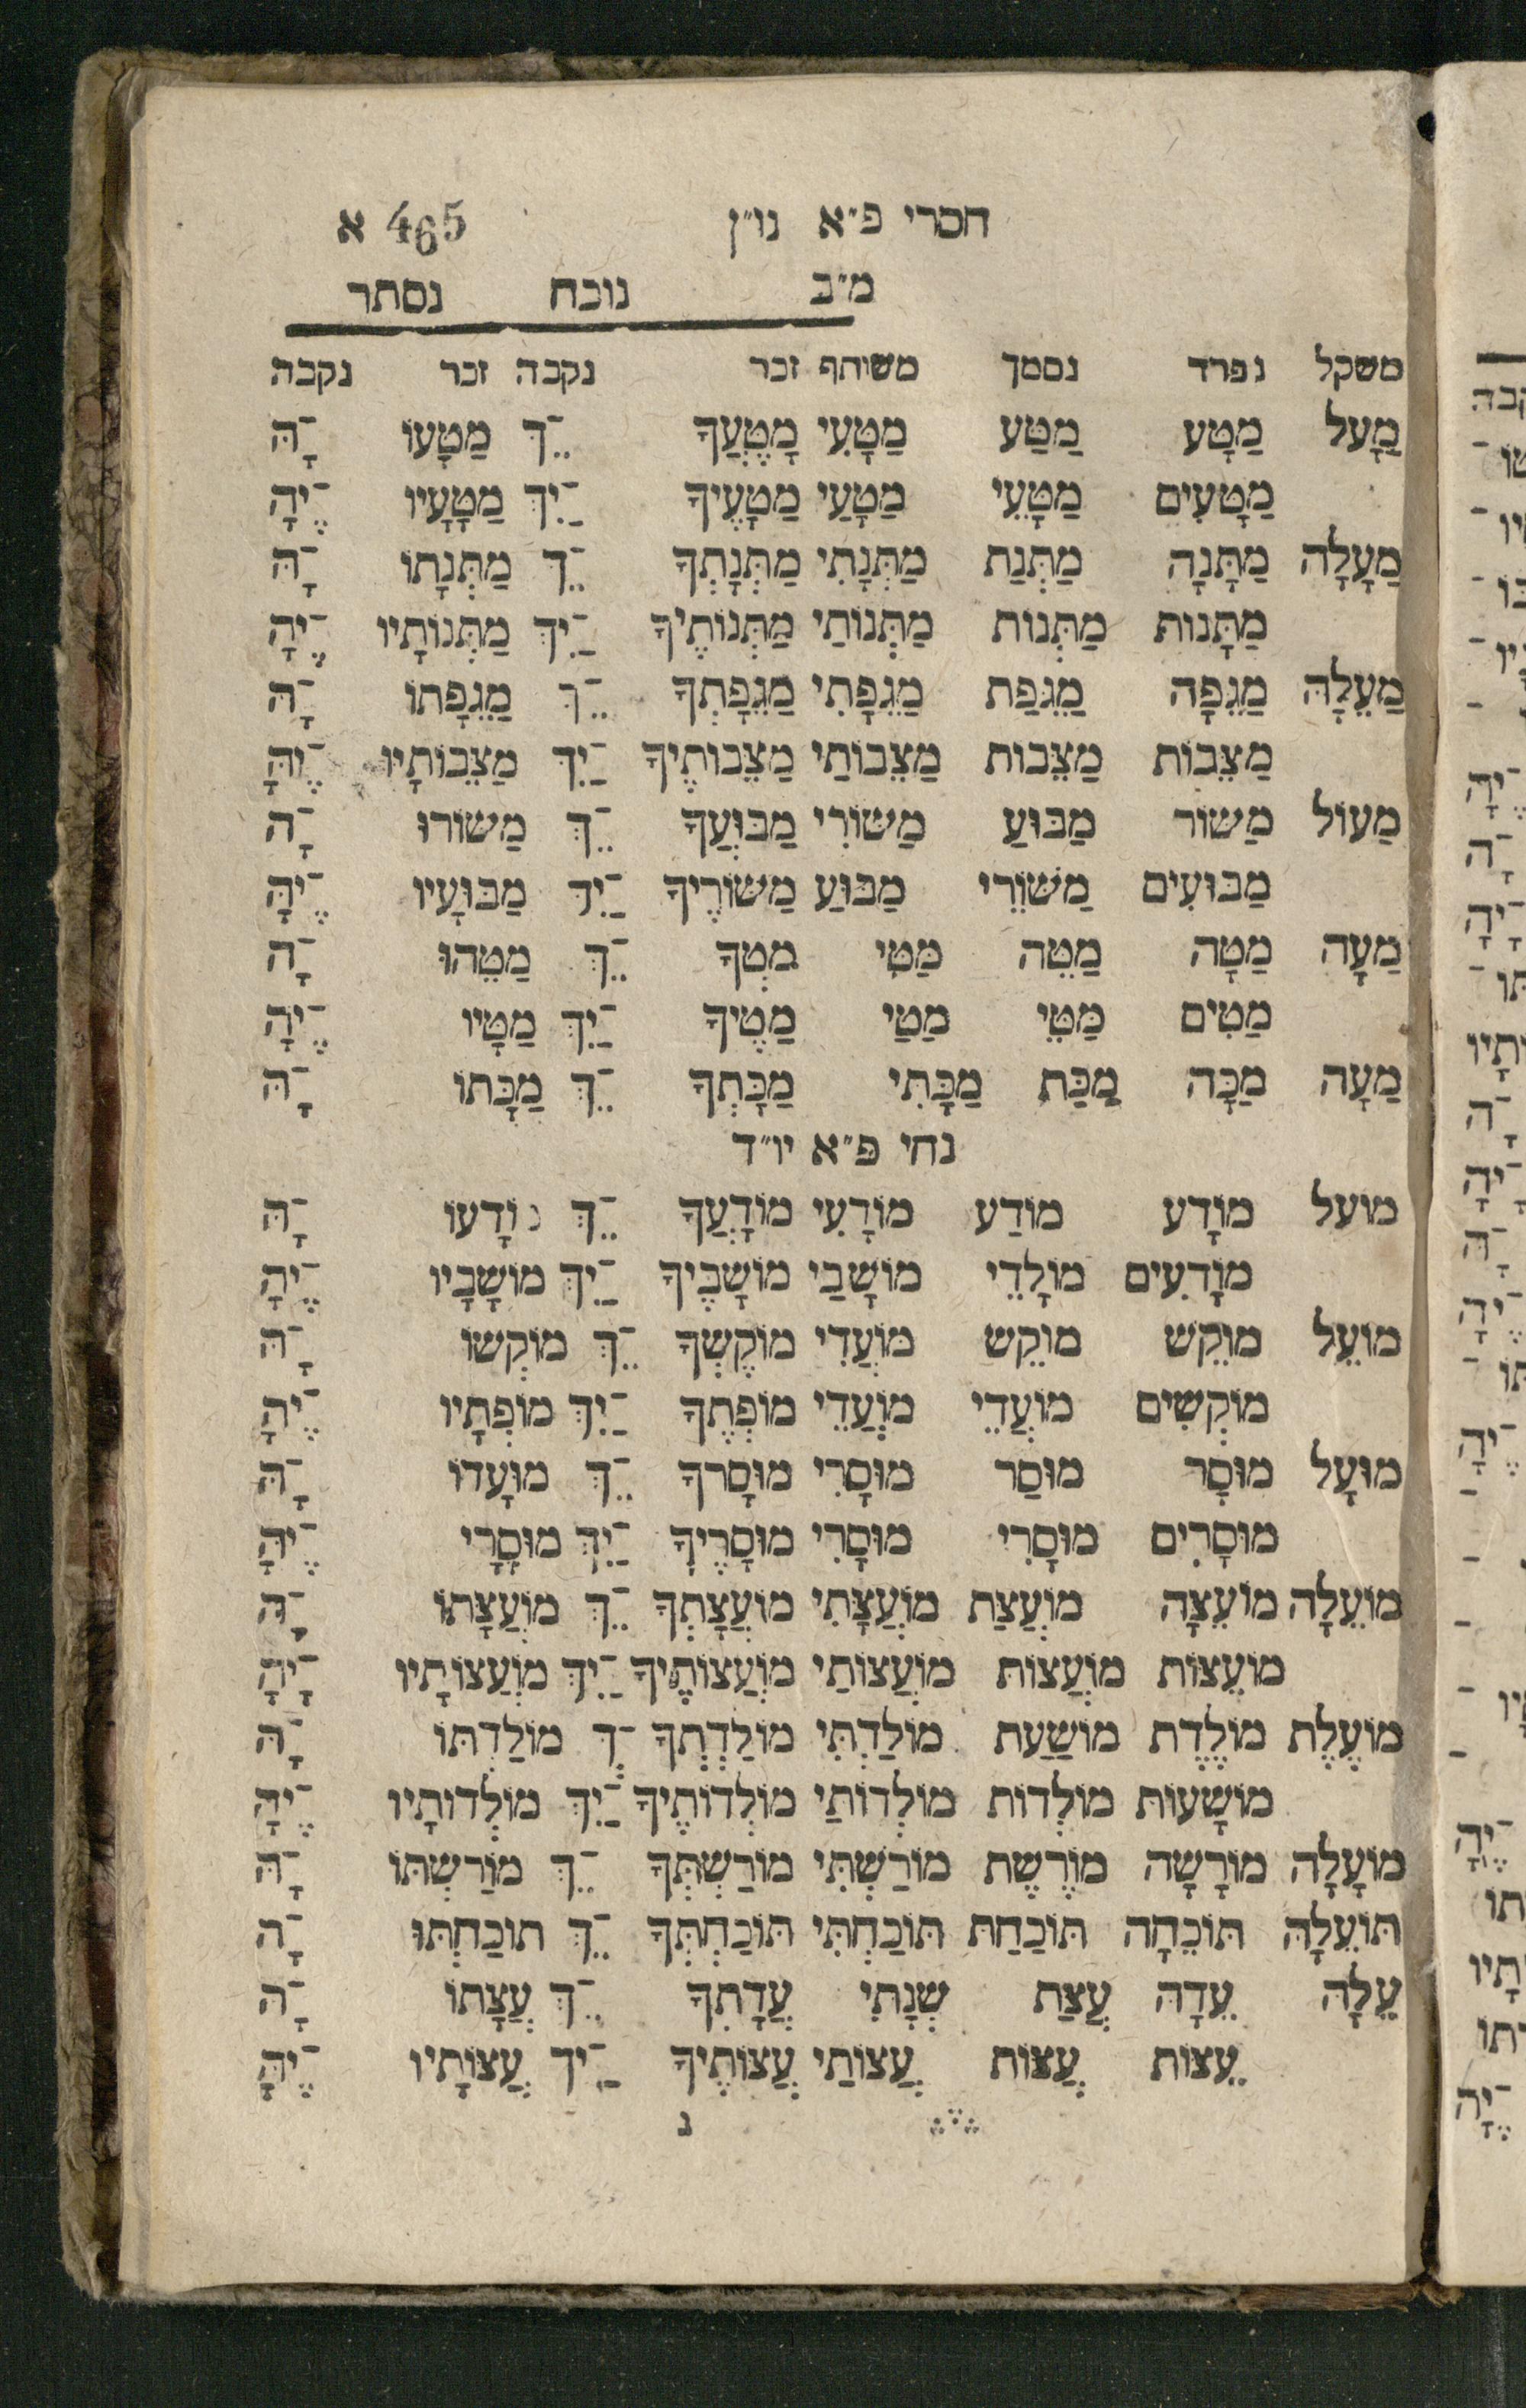 חסרי פ״א נו״ן 465 א
מ״ב נוכח נסתר
משקל נפרד נסמך משותף זכר נקבה זכר נקבה
מַעָל מַטָע מַטַּע מַטָּעִי מַטָּעֲךָ ־ֵךְ מַטָעוֹ ־ָהּ
מַטָעִים מַטָּעֵי מַטָּעַי מַטָעֶיךָ ־ַיִךְ מַטָּעָיו ־ֶיהָ
מַעָלָה מַתָּנָה מַתְּנַת מַתְּנָתִי מַתְּנָתְךָ ־ֵךְ מַתְּנָתוֹ ־ָהּ
מַתָּנוֹת מַתְּנוֹת מַתְּנוֹתַי מַתְּנוֹתֶיךָ ־ַיִךְ מַתְּנוֹתָיו ־ֶיהָ
מַעֵלָה מַגֵפָה מַגֵּפַת מַגֵּפָתִי מַגֵּפָתְךָ ־ֵךְ מַגֵפָתוֹ ־ָהּ
מַצֵבוֹת מַצֵּבוֹת מַצֵבוֹתַי מַצֵּבוֹתֶיךָ ־ַיִךְ מַצֵבוֹתָיו ־ֶיהָ
מַעוֹל מַשׂוֹר מַבּוּעַ מַשּׂוֹרִי מַבּוּעֲךָ ־ֵךְ מַשׂוֹרוֹ ־ָהּ
מַבּוּעִים מַשּׂוֹרֵי מַבּוּעַ מַשׂוֹרֶיךָ ־ַיִךְ מַבּוּעָיו ־ֶיהָ
מַעָה מַטָה מַטֵּה מַטִּי מטְךָ ־ֵךְ מַטֵהוּ ־ָהּ
מַטִים מַטֵּי מַטַי מַטֶיךָ ־ַיִךְ מַטָּיו ־ֶיהָ
מַעָה מַכָּה מַכַּת מַכָּתִי מַכָּתְךָ ־ֵךְ מַכָּתוֹ ־ָהּ
נחי פ״א יו״ד
מועל מוֹדָע מוֹדַע מוֹדָעִי מוֹדָעֲךָ ־ֵךְ וֹדָעוֹ ־ָהּ
מוֹדָעִים מוֹלָדֵי מוֹשָׁבַי מוֹשָׁבֶיךָ ־ַיִךְ מוֹשָׁבָיו ־ֶיהָ
מוֹעֵל מוֹקֵשׁ מוֹקֵשׁ מוֹעֲדִי מוֹקֶשְׁךָ ־ֵךְ מוֹקְשׁוֹ ־ָהּ
מוֹקְשִׁים מוֹעֲדֵי מוֹעֲדֵי מוֹפְתֶךָ ־ַיִךְ מוֹפְתָיו ־ֶיהָ
מוּעָל מוּסָר מוּסַר מוּסָרִי מוּסָרךָ ־ֵךְ מוּעָדוֹ ־ָהּ
מוּסָרִים מוּסָרֵי מוּסָרִי מוּסָרֶיךָ ־ַיִךְ מוּסָרָי ־ֶיהָ
מוֹעֵלָה מוֹעֵצָה מוֹעֲצַת מוֹעֲצָתִי מוֹעֲצָתְךָ ־ֵךְ מוֹעֲצָתוֹ ־ָהּ
מוֹעֵצוֹת מוֹעֲצוֹת מוֹעֲצוֹתַי מוֹעֲצוֹתֶיךָ ־ַיִךְ מוֹעֲצוֹתָיו ־ָיהָ
מוֹעֶלֶת מוֹלֶדֶת מוֹשַׁעַת מוֹלַדְתִּי מוֹלַדְתְּךָ ־ךְ מוֹלַדְתּוֹ ־ָהּ
מוֹשָׁעוֹת מוֹלְדוֹת מוֹלְדוֹתַי מוֹלְדוֹתֶיךָ ־ַיִךְ מוֹלְדוֹתָיו ־ֶיהָ
מוֹעָלָה מוֹרָשָׁה מוֹרֶשֶׁת מוֹרַשְׁתִּי מוֹרַשְׁתְּךָ ־ֵךְ מוֹרַשְׁתּוֹ ־ָהּ
תּוֹעֵלָה תּוֹכֵחָה תּוֹכַחַת תּוֹכַחְתִּי תּוֹכַחְתְּךָ ־ֵךְ תוֹכַחְתּוֹ ־ָהּ
עֵלָה עֵדָה עֲצַת שְׁנָתִי עֲדָתְךָ ־ֵךְ עֲצָתוֹ ־ָהּ
עֵצוֹת עֲצוֹת עֲצוֹתַי עֲצוֹתֶיךָ ־ַיִךְ עֲצוֹתָיו ־ֶיהָ
נ